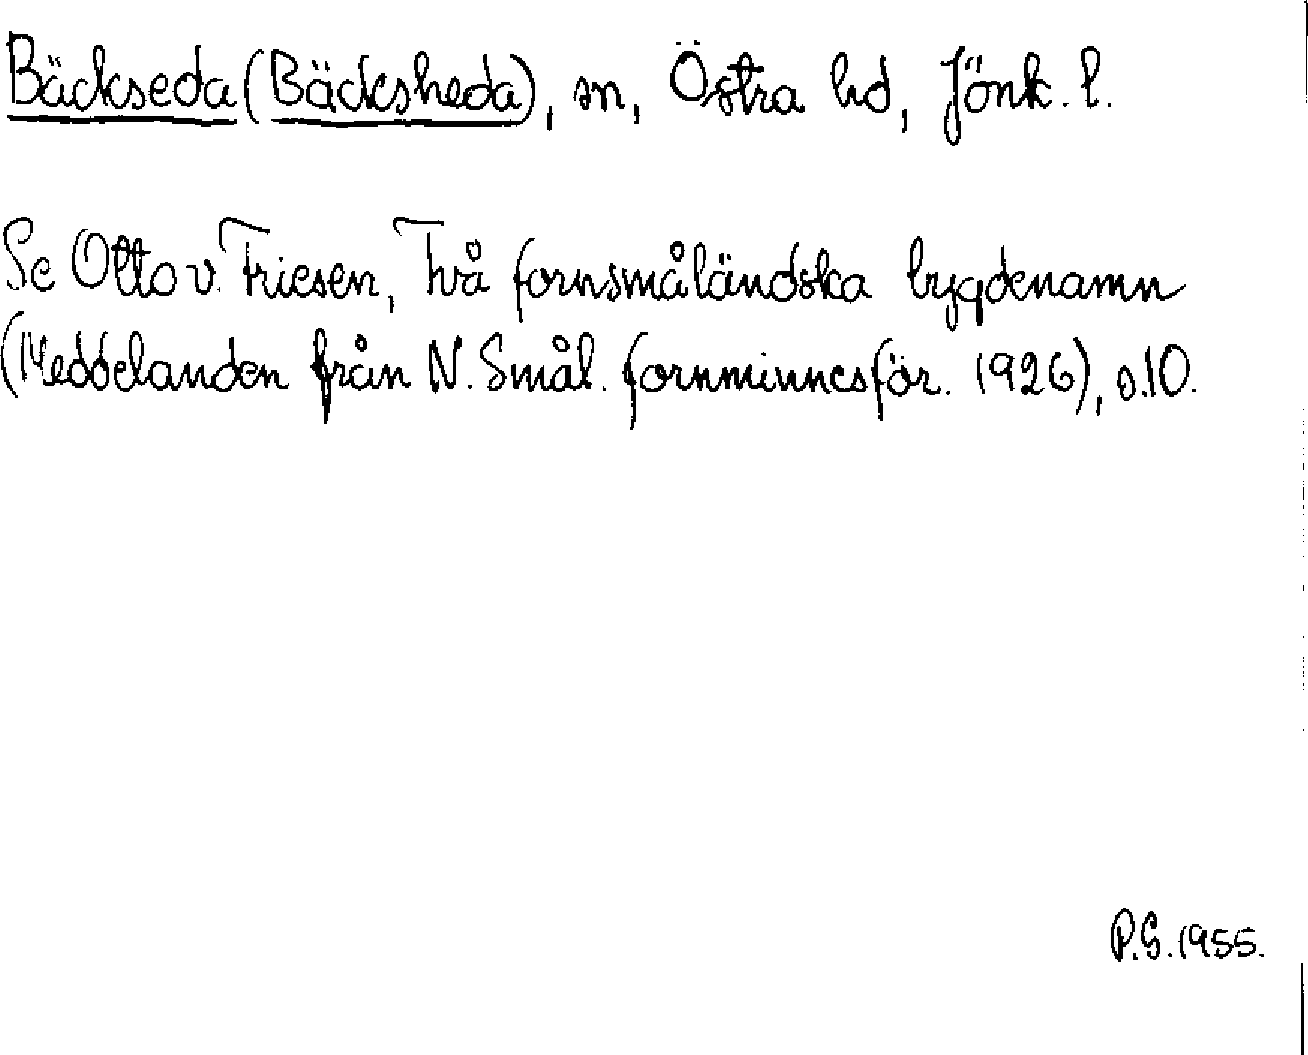 Bäckseda (Bäcksheda), sn, Östra hd, Jönk. l.
Se Otto v. Friesen, Två fornsmåländska bygdenamn
(Meddelanden från N. Smål. fornminnesför. 1926), s. 10.
P.G. 1955.